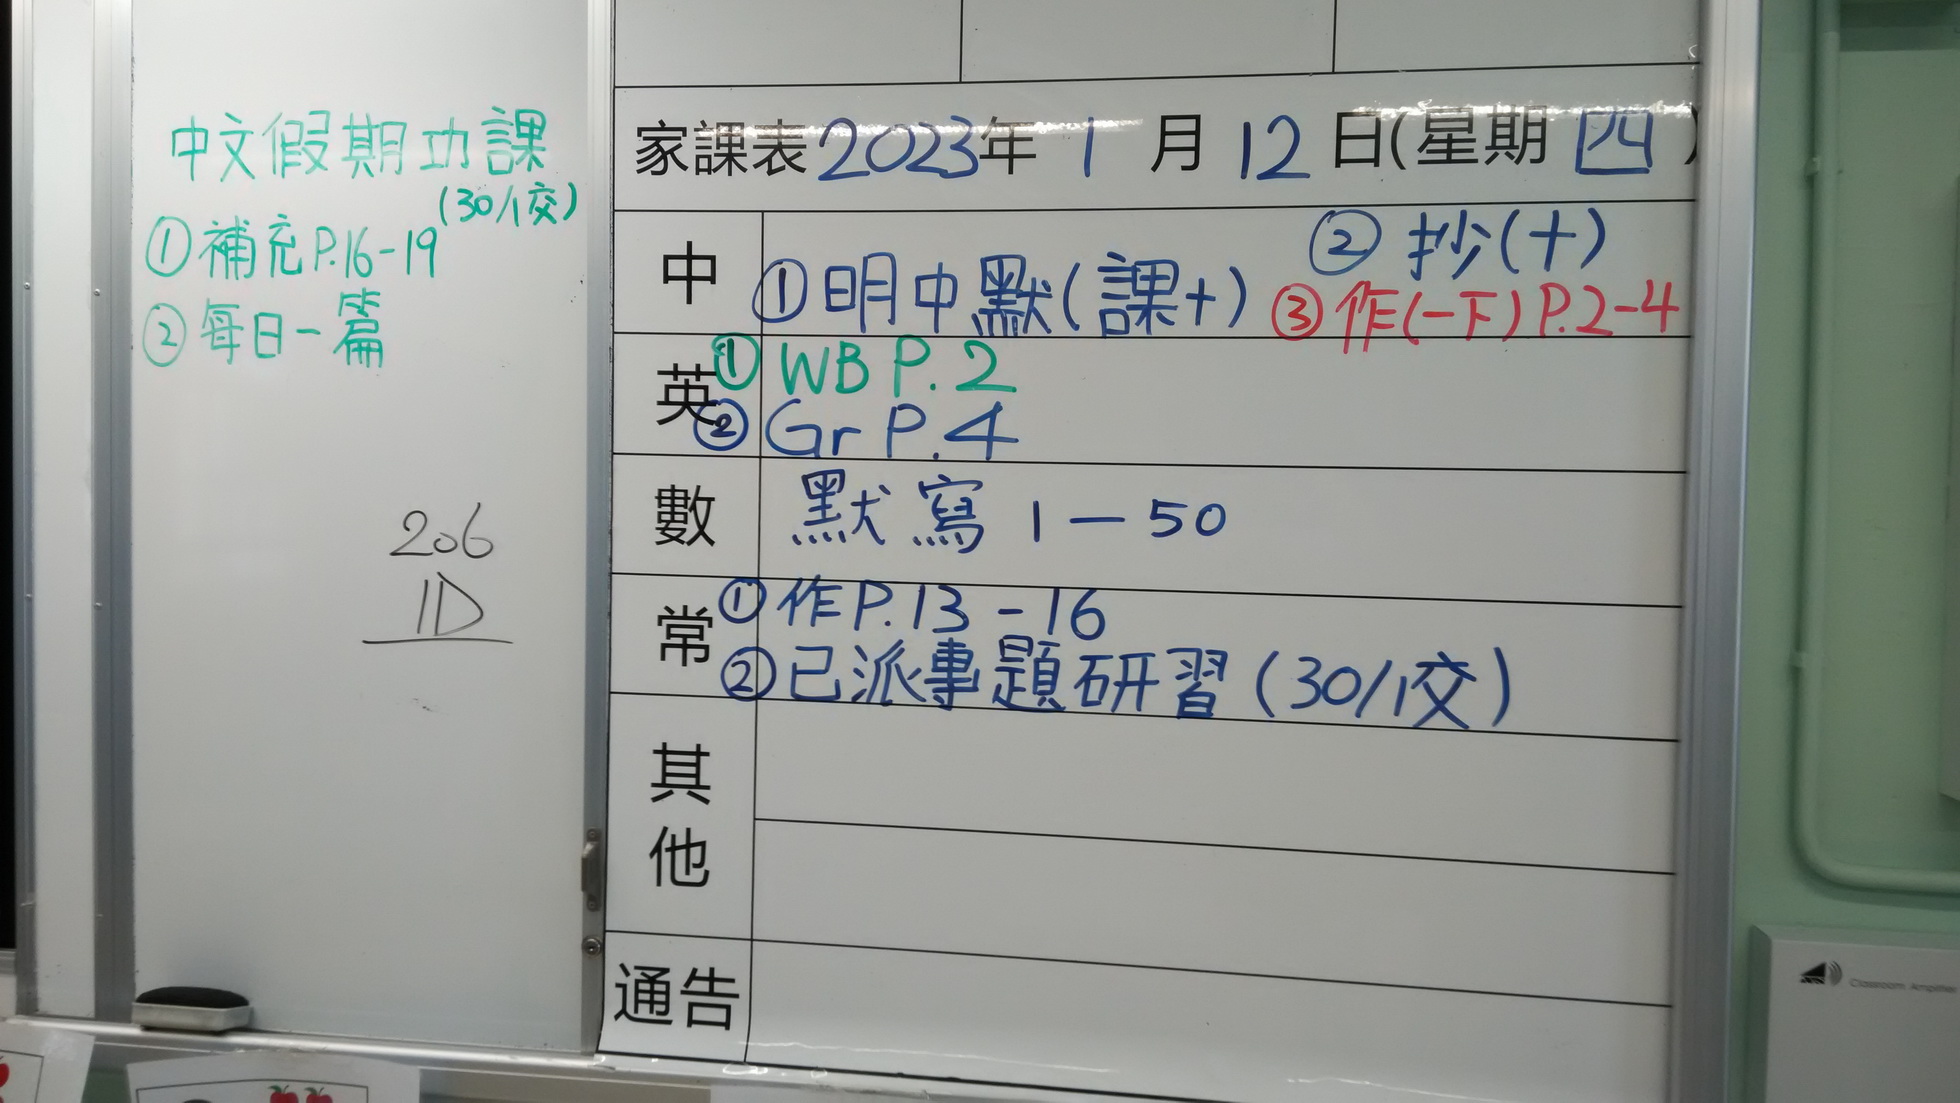 中文假期功課
(30/1交)
①補充P.16-19
②每日一篇
206
1D
家課表2023年1月12日(星期四)
中
①明中默(課十)
②抄(十)
③作(一下)P.2-4
英
①WB P.2
②Gr P.4
數
默寫1—50
常
①作P.13-16
②已派專題研習(30/1交)
其他
通告
Classroom Amplifier